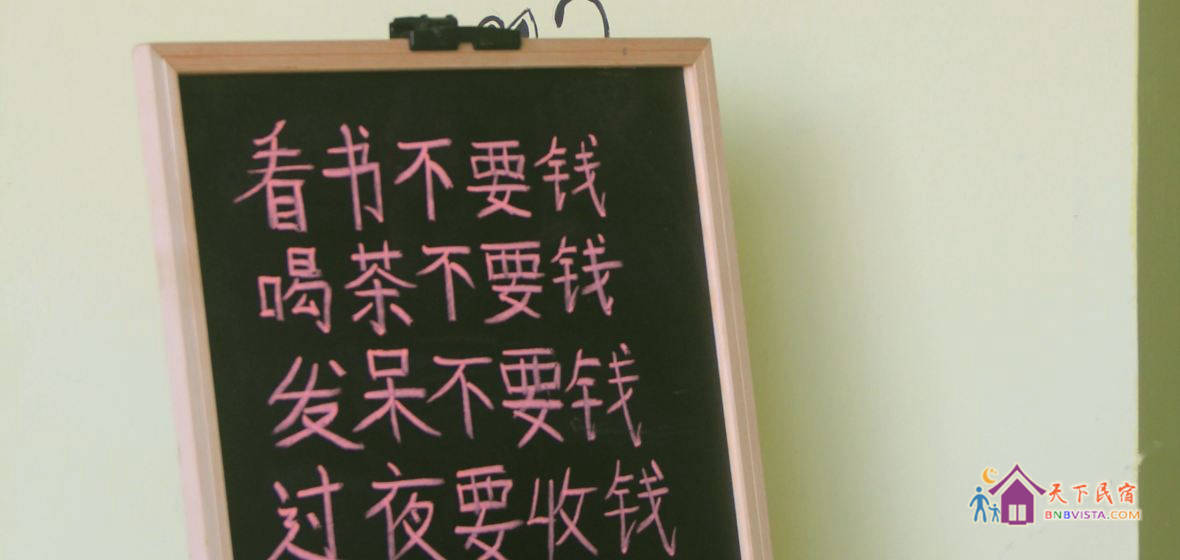 看书不要钱
喝茶不要钱
发呆不要钱
过夜要收钱
天下民宿
BNBVISTA.COM